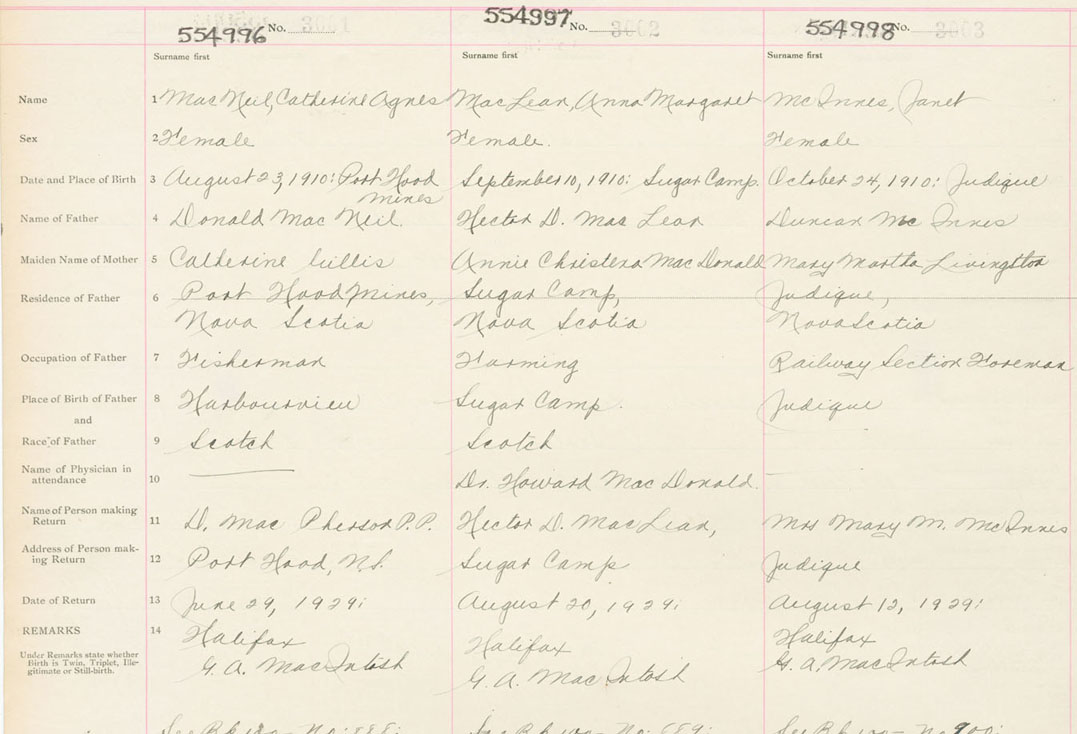 554996 No. 3001 554997 No. 3002 554998 No. 3003
Surname first Surname first Surname first
Name 1 MacNeil, Catherine Agnes MacLean, Anna Margaret McInnes, Janet
Sex 2 Female Female. Female
Date and Place of Birth 3 August 23, 1910: Port Hood September 10, 1910: Sugar Camp. October 24, 1910: Judique
mines
Name of Father 4 Donald MacNeil. Hector D. MacLean Duncan McInnes
Maiden Name of Mother 5 Catherine Gillis Annie Christena MacDonald Mary Martha Livingston
Residence of Father 6 Port Hood Mines, Sugar Camp, Judique,
Nova Scotia Nova Scotia Nova Scotia
Occupation of Father 7 Fisherman Farming Railway Section Foreman
Place of Birth of Father 8 Harbourview Sugar Camp. Judique
and
Race of Father 9 Scotch Scotch
Name of Physician in
attendance 10 Dr. Howard MacDonald.
Name of Person making
Return 11 D. MacPherson P.P. Hector D. MacLean, Mrs Mary M. McInnes
Address of Person mak-
ing Return 12 Port Hood, N.S. Sugar Camp Judique
Date of Return 13 June 29, 1929: August 20, 1929: August 12, 1929:
REMARKS 14 Halifax Halifax Halifax
Under Remarks state whether
Birth is Twin, Triplet, Ille-
gitimate or Still-birth.
G. A. MacIntosh G. A. MacIntosh G. A. MacIntosh